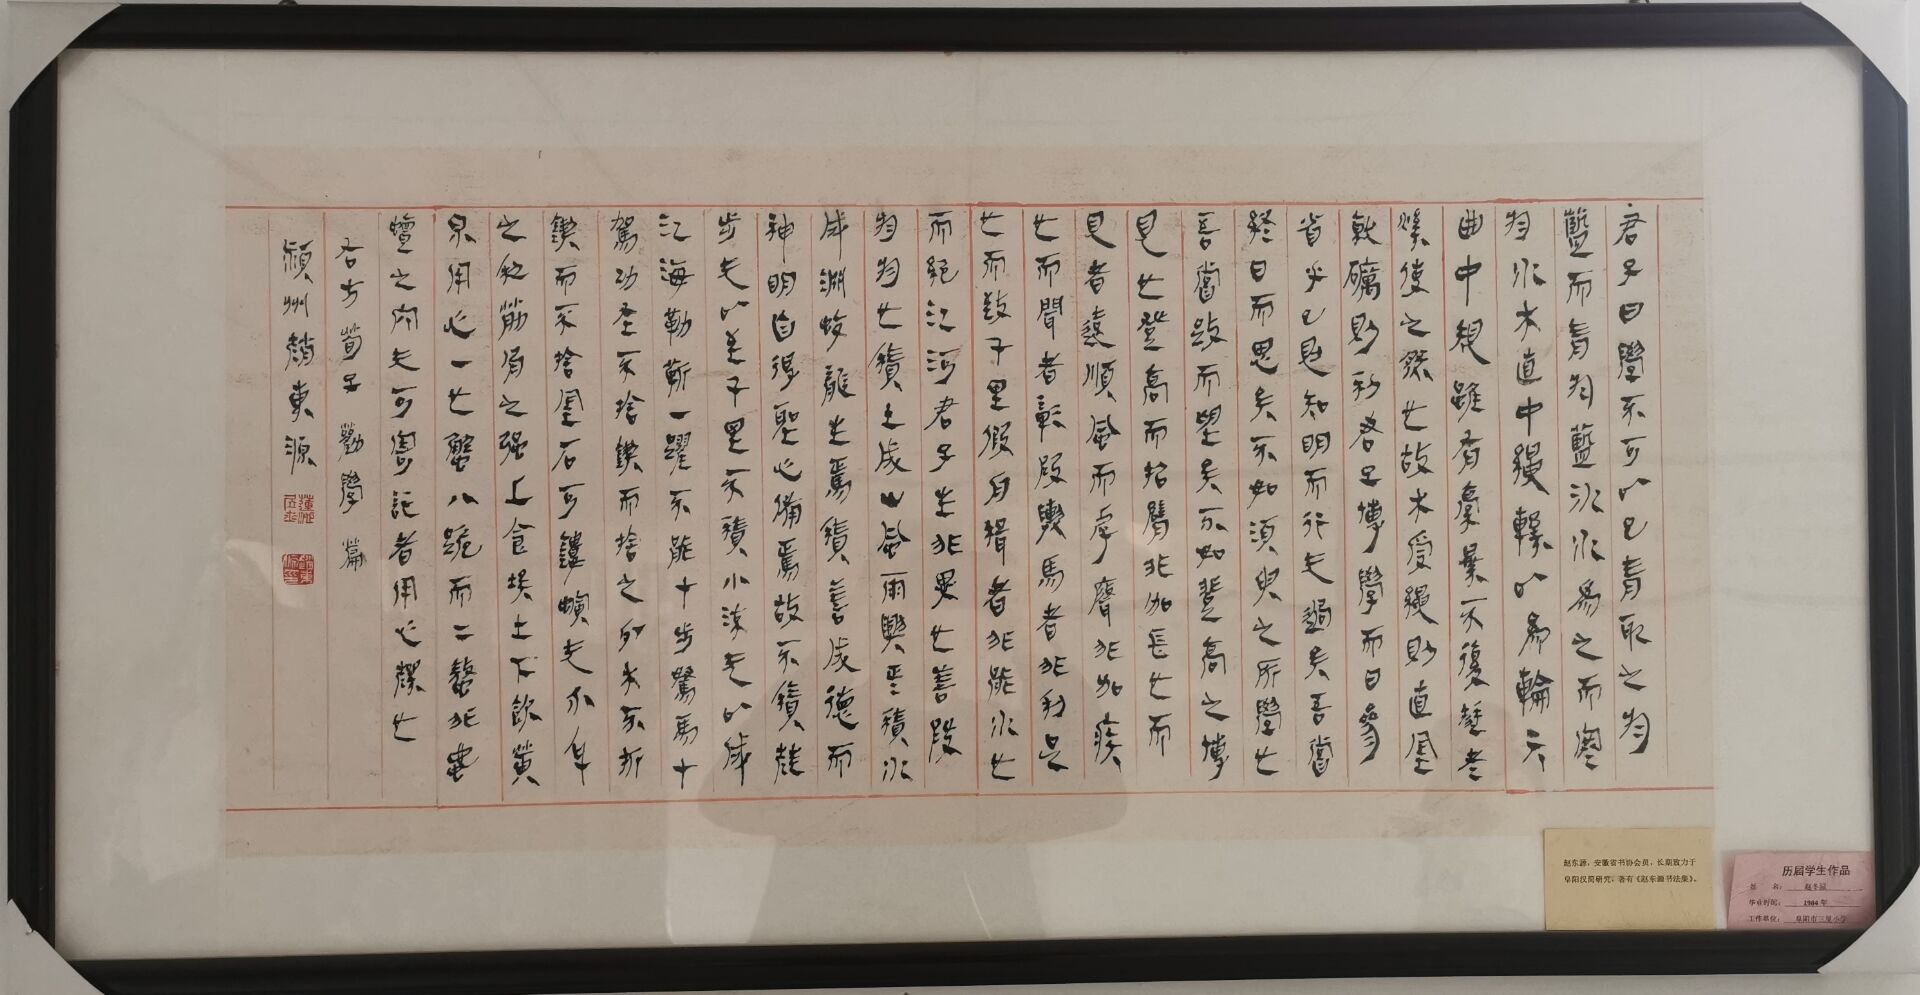 君子曰學不可以已青取之於
藍而青於藍冰水為之而寒
於水木直中繩輮以為輪其
曲中規雖有槁暴不復挺者
輮使之然也故木受繩則直金
就礪則利君子博學而日參
省乎己則知明而行無過矣吾嘗
終日而思矣不如須臾之所學也
吾嘗跂而望矣不如登高之博
見也登高而招臂非加長也而
見者遠順風而呼聲非加疾
也而聞者彰假輿馬者非利足
也而致千里假舟楫者非能水也
而絕江河君子生非異也善假
於物也積土成山風雨興焉積水
成淵蛟龍生焉積善成德而
神明自得聖心備焉故不積蹞
步無以至千里不積小流無以成
江海騏驥一躍不能十步駑馬十
駕功在不捨鍥而捨之朽木不折
鍥而不捨金石可鏤螾無爪牙
之利筋骨之强上食埃土下飲黃
泉用心一也蟹八跪而二螯非虵
蟺之穴無可寄託者用心躁也
右方荀子勸學篇
潁州趙東源
赵东源,安徽省书协会员,长期致力于
阜阳汉简研究,著有《赵东源书法集》。
历届学生作品
姓 名: 赵冬源
毕业时间: 1984 年
工作单位: 阜阳市三里小学